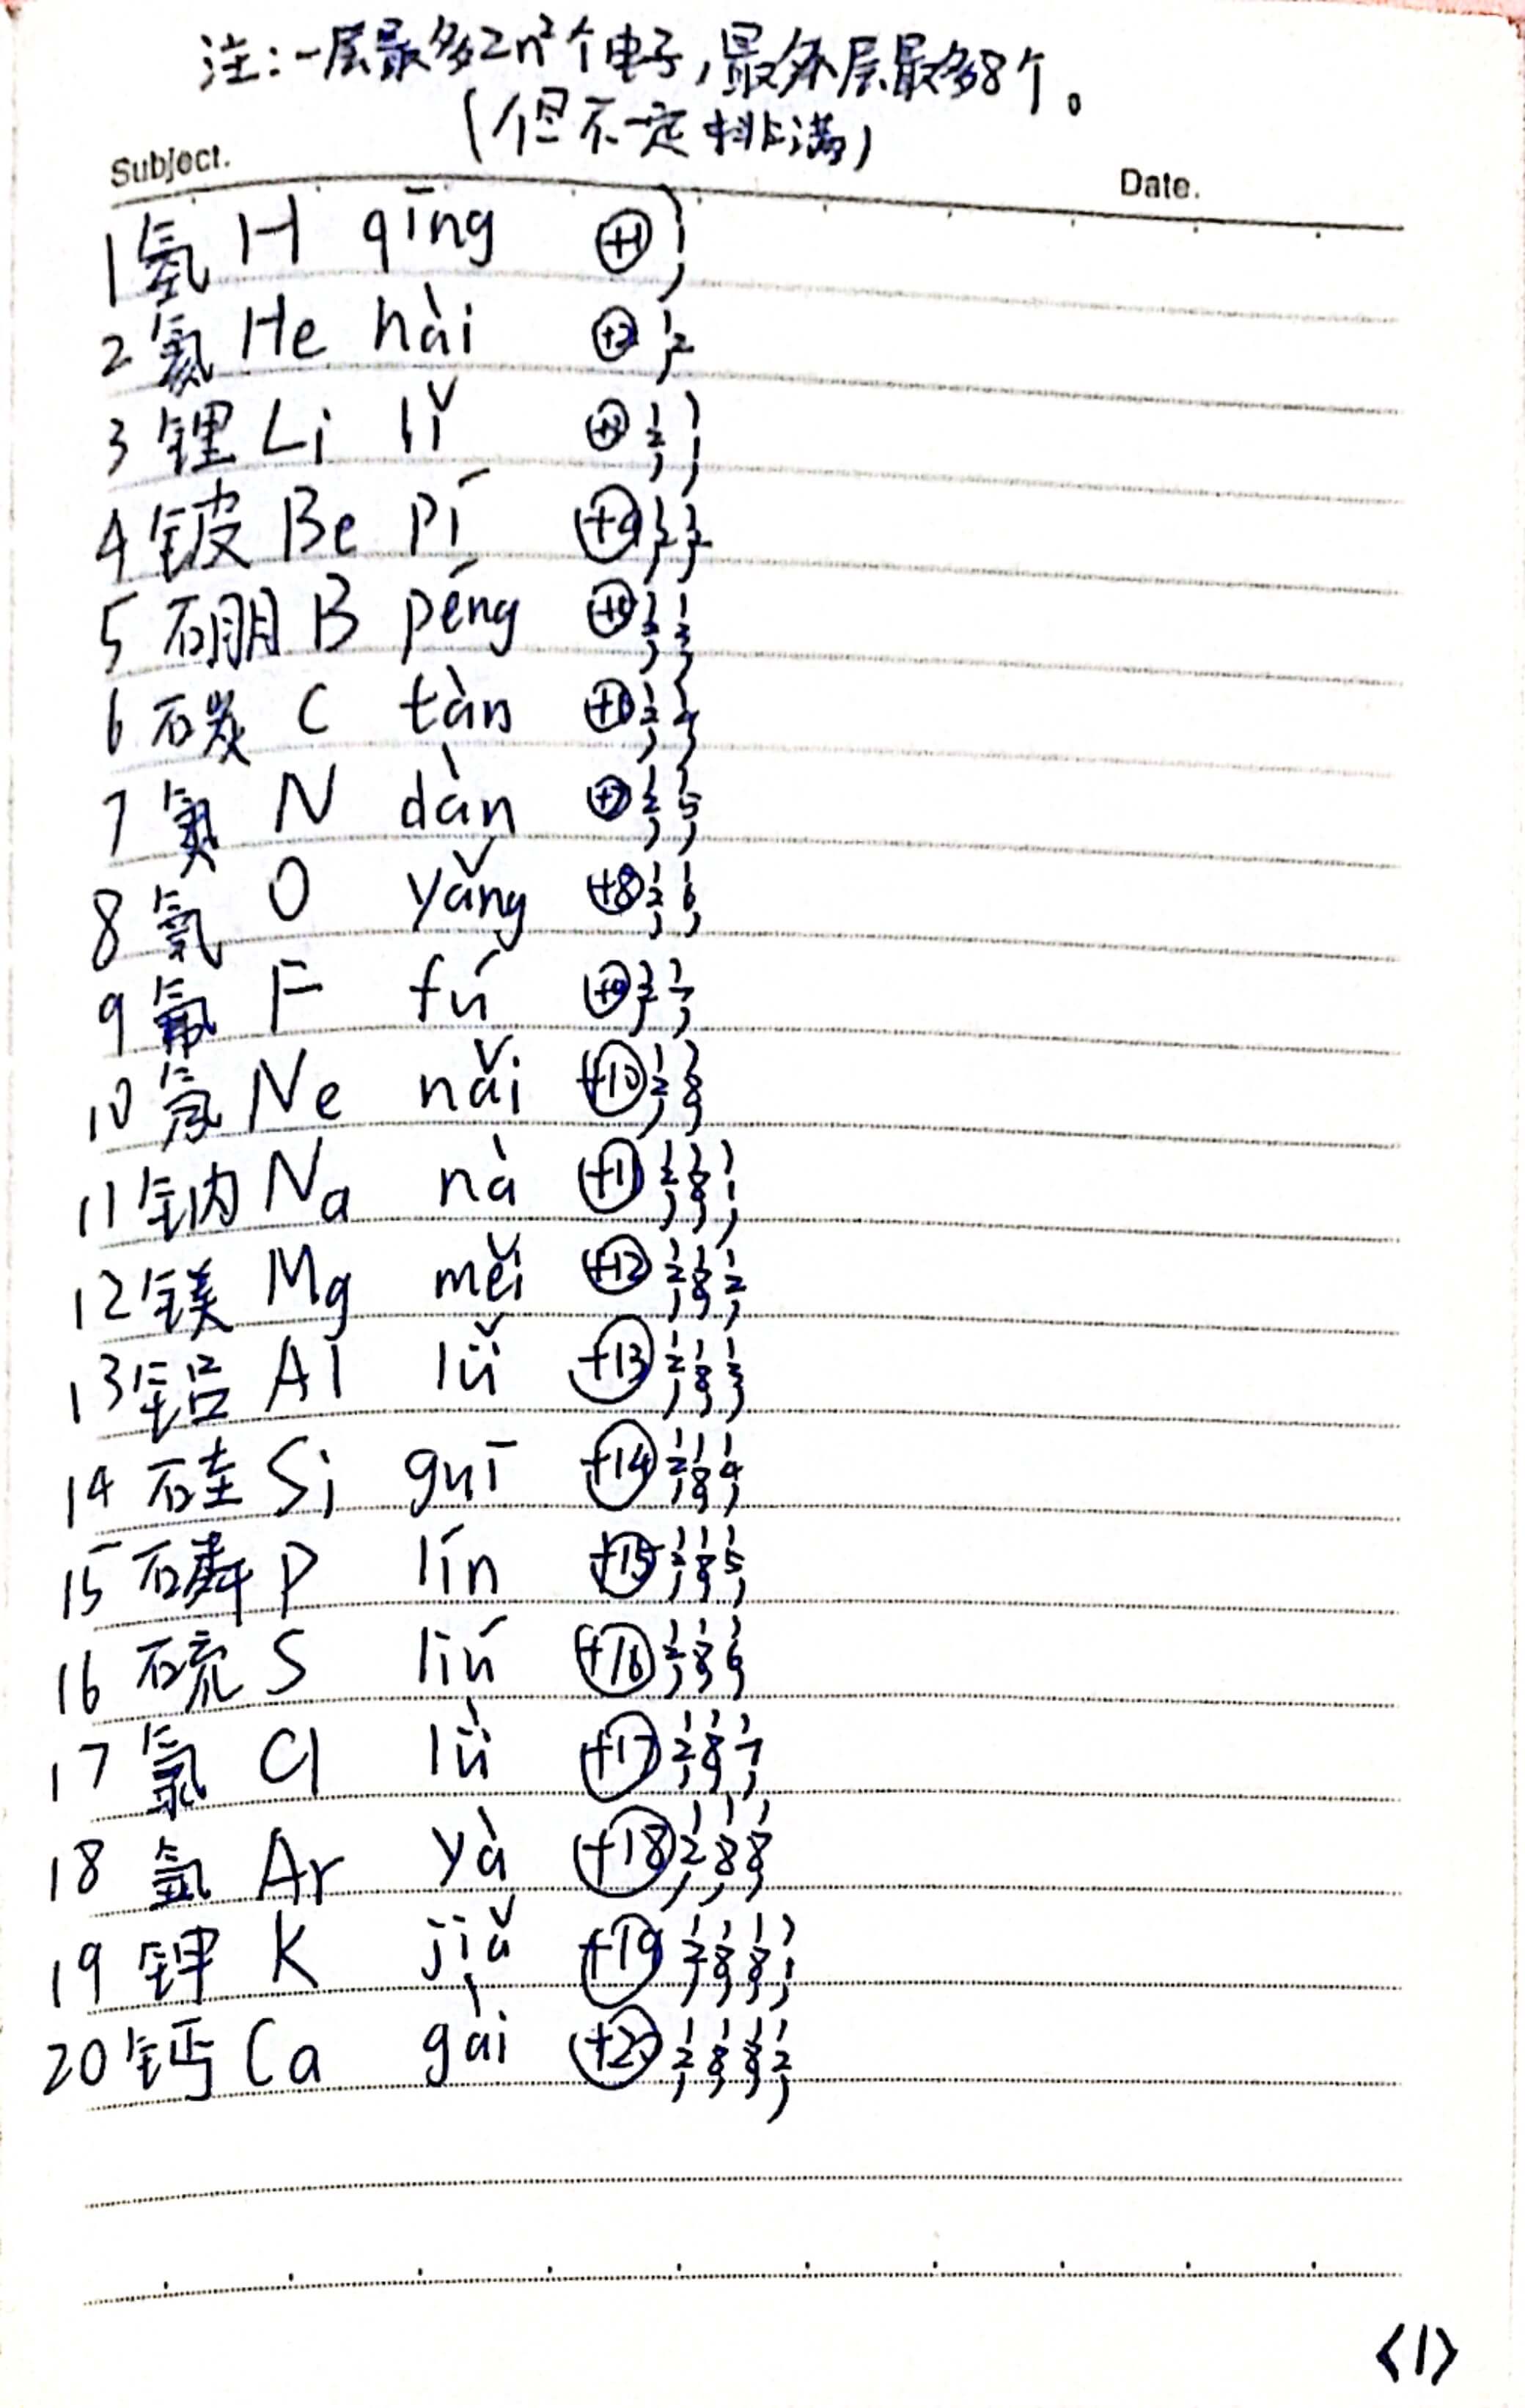 注:一层最多2n²个电子,最外层最多8个。
(但不一定排满)
Subject. Date.
1 氢 H qīng +1 1
2 氦 He hài +2 2
3 锂 Li lǐ +3 2 1
4 铍 Be pí +4 2 2
5 硼 B péng +5 2 3
6 碳 C tàn +6 2 4
7 氮 N dàn +7 2 5
8 氧 O yǎng +8 2 6
9 氟 F fú +9 2 7
10 氖 Ne nǎi +10 2 8
11 钠 Na nà +11 2 8 1
12 镁 Mg měi +12 2 8 2
13 铝 Al lǚ +13 2 8 3
14 硅 Si guī +14 2 8 4
15 磷 P lín +15 2 8 5
16 硫 S liú +16 2 8 6
17 氯 Cl lǜ +17 2 8 7
18 氩 Ar yà +18 2 8 8
19 钾 K jiǎ +19 2 8 8 1
20 钙 Ca gài +20 2 8 8 2
<1>